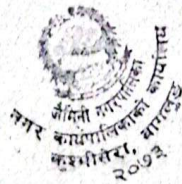 जैमिनी नगरपालिका
नगर कार्यपालिकाको कार्यालय
कुश्मीसेरा, बागलुङ
२०७३